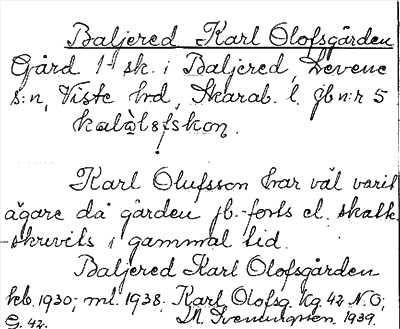 Baljered Karl Olofsgården
Gård 1 sk. i Baljered, Levene
s:n, Viste hrd, Skarab. l. jb n:r 5
kalòlsfskon.
Karl Olufsson har väl varit
ägare då gården jb.-förts el. skatt-
-skrivits i gammal tid.
Baljered Karl Olofsgården
kb. 1930; ml. 1938. Karl Olofsg. Kg 42 N.O;
G. 42. 1939.